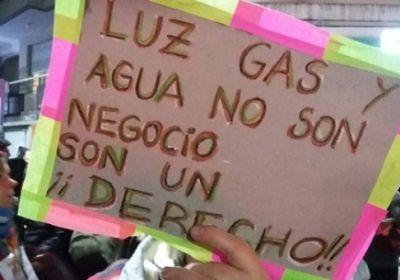 LUZ GAS Y
AGUA NO SON
NEGOCIO
SON UN
¡¡ DERECHO!!